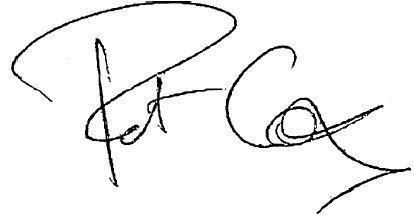 Pat Cox